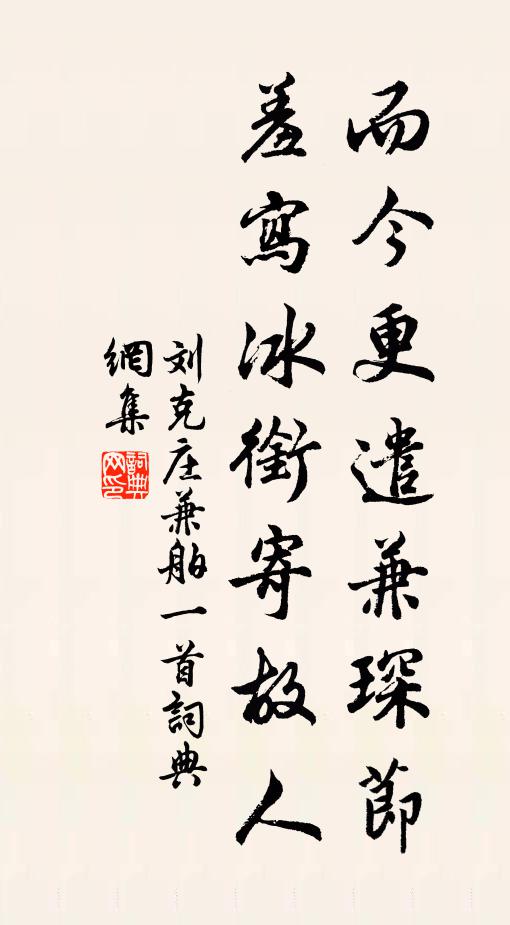 而今更遣兼琛節
羞寫冰銜寄故人
刘克庄兼舶一首詞典
網集
詞典
网印